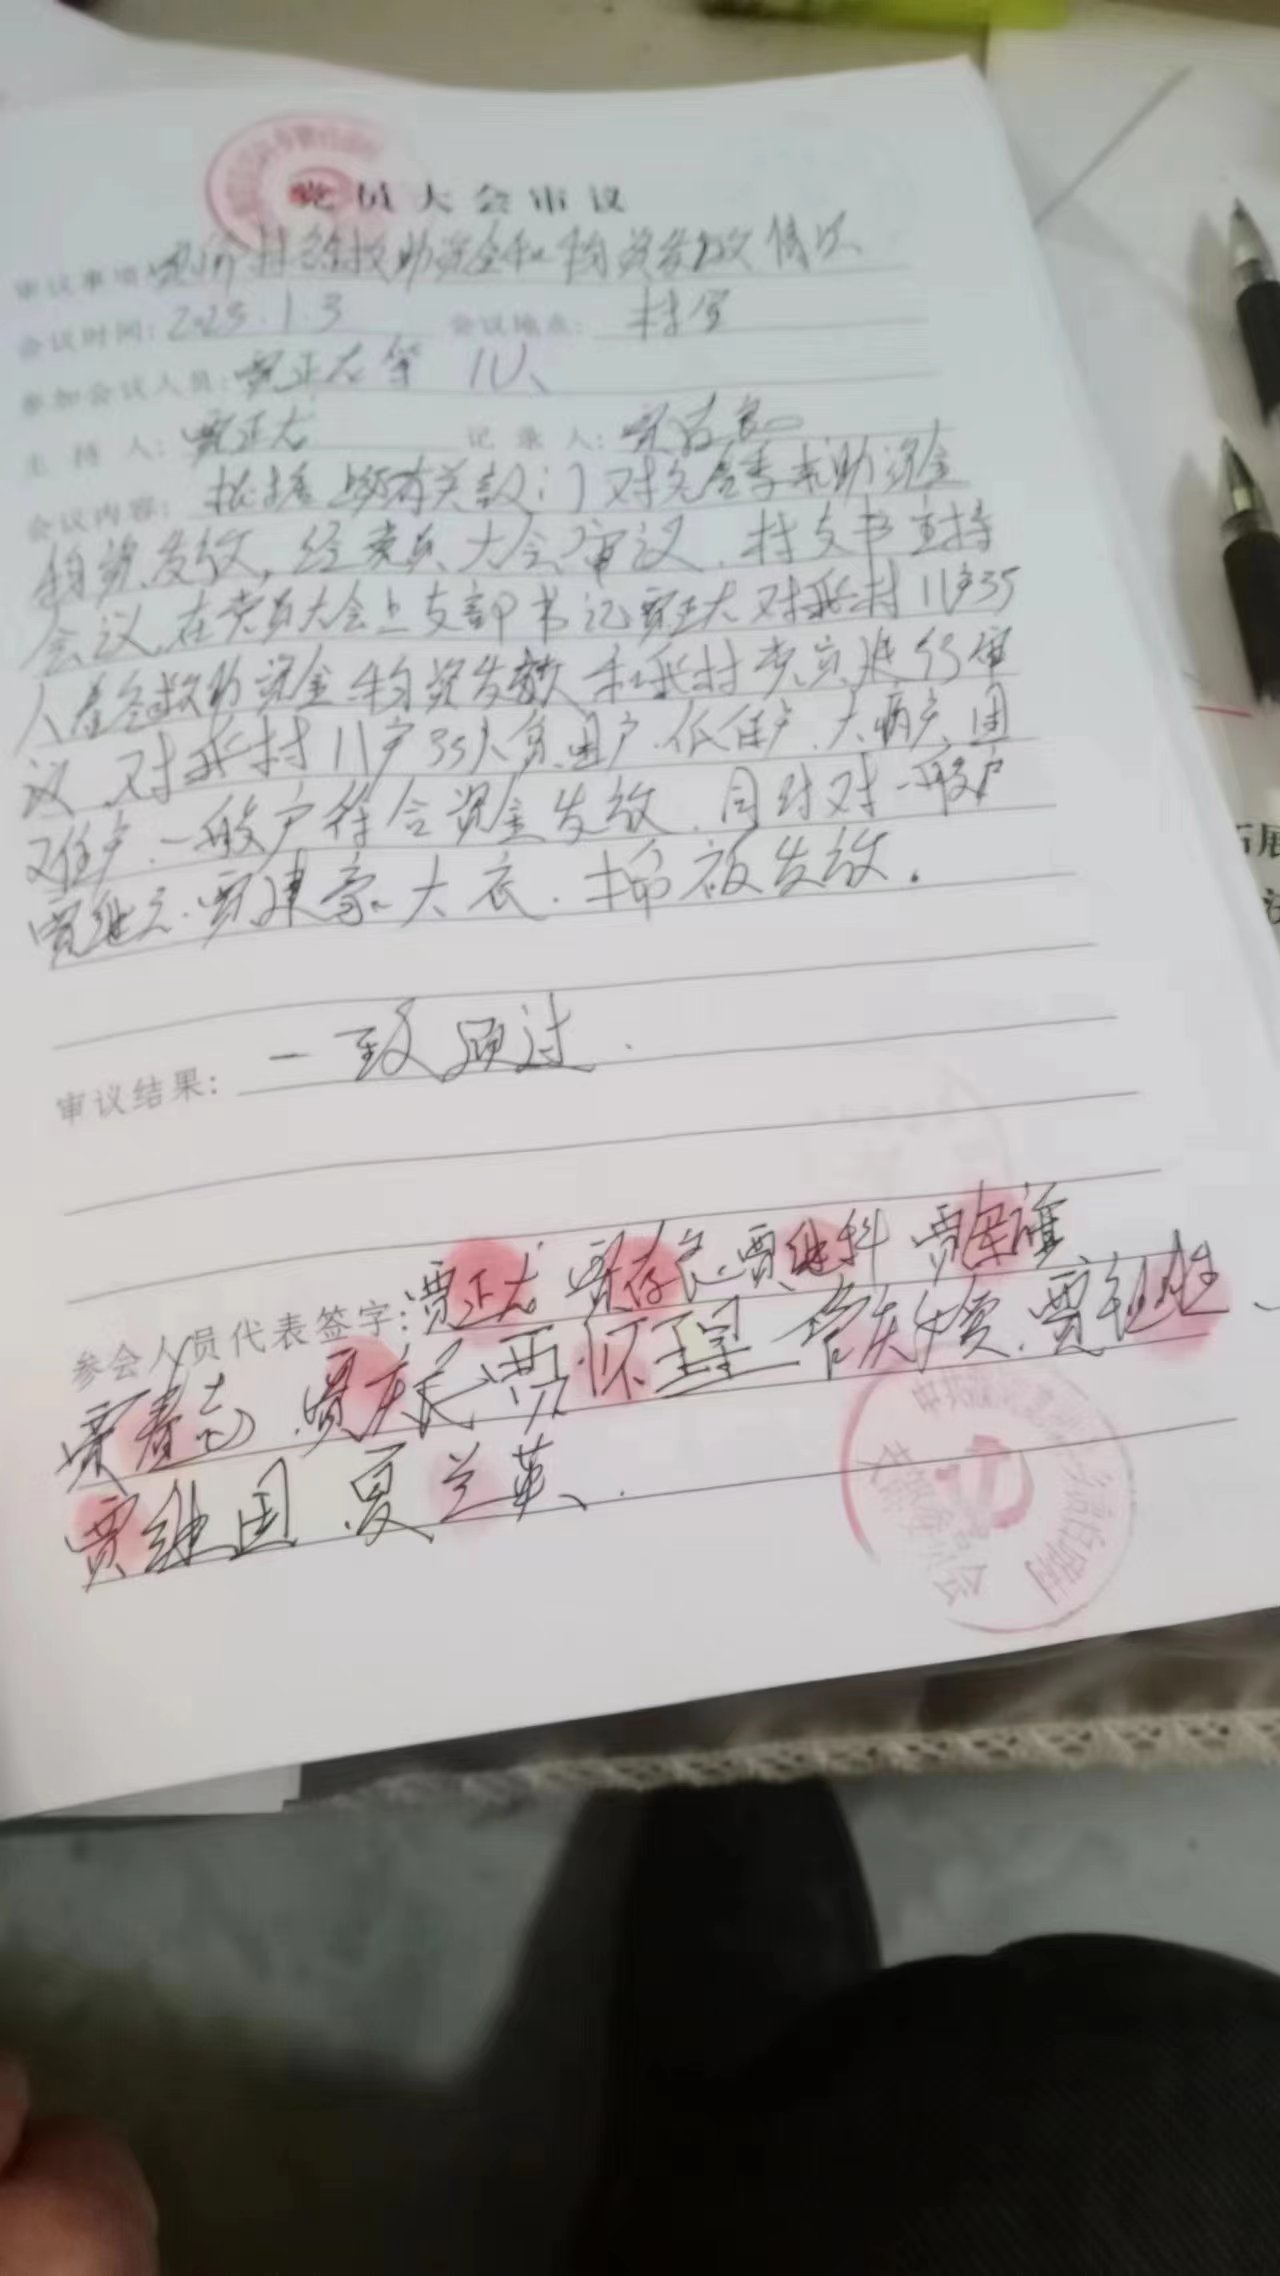 党员大会审议
审议事项: 村冬春救助资金和物资发放情况
会议时间: 2023.1.3 会议地点: 村室
参加会议人员: 贾正大等 11人
主持人: 贾正大 记录人: 贾
会议内容: 根据上级有关部门对冬春季求助资金
物资发放,经党员大会审议,村支书主持
会议,在党员大会上支部书记贾正大对我村11户35
人春冬救助资金物资发放 和我村党员进行审
议,对我村11户35人贫困户.低保户、大病户、困
难户.一般户符合资金发放.同时对一般户
贾继.贾建豪大衣.棉被发放.
审议结果: 一致通过.
参会人员代表签字: 贾正大 贾存良 贾继科 贾
贾春志 贾庆民 贾怀 贾
贾继国 夏兰英.